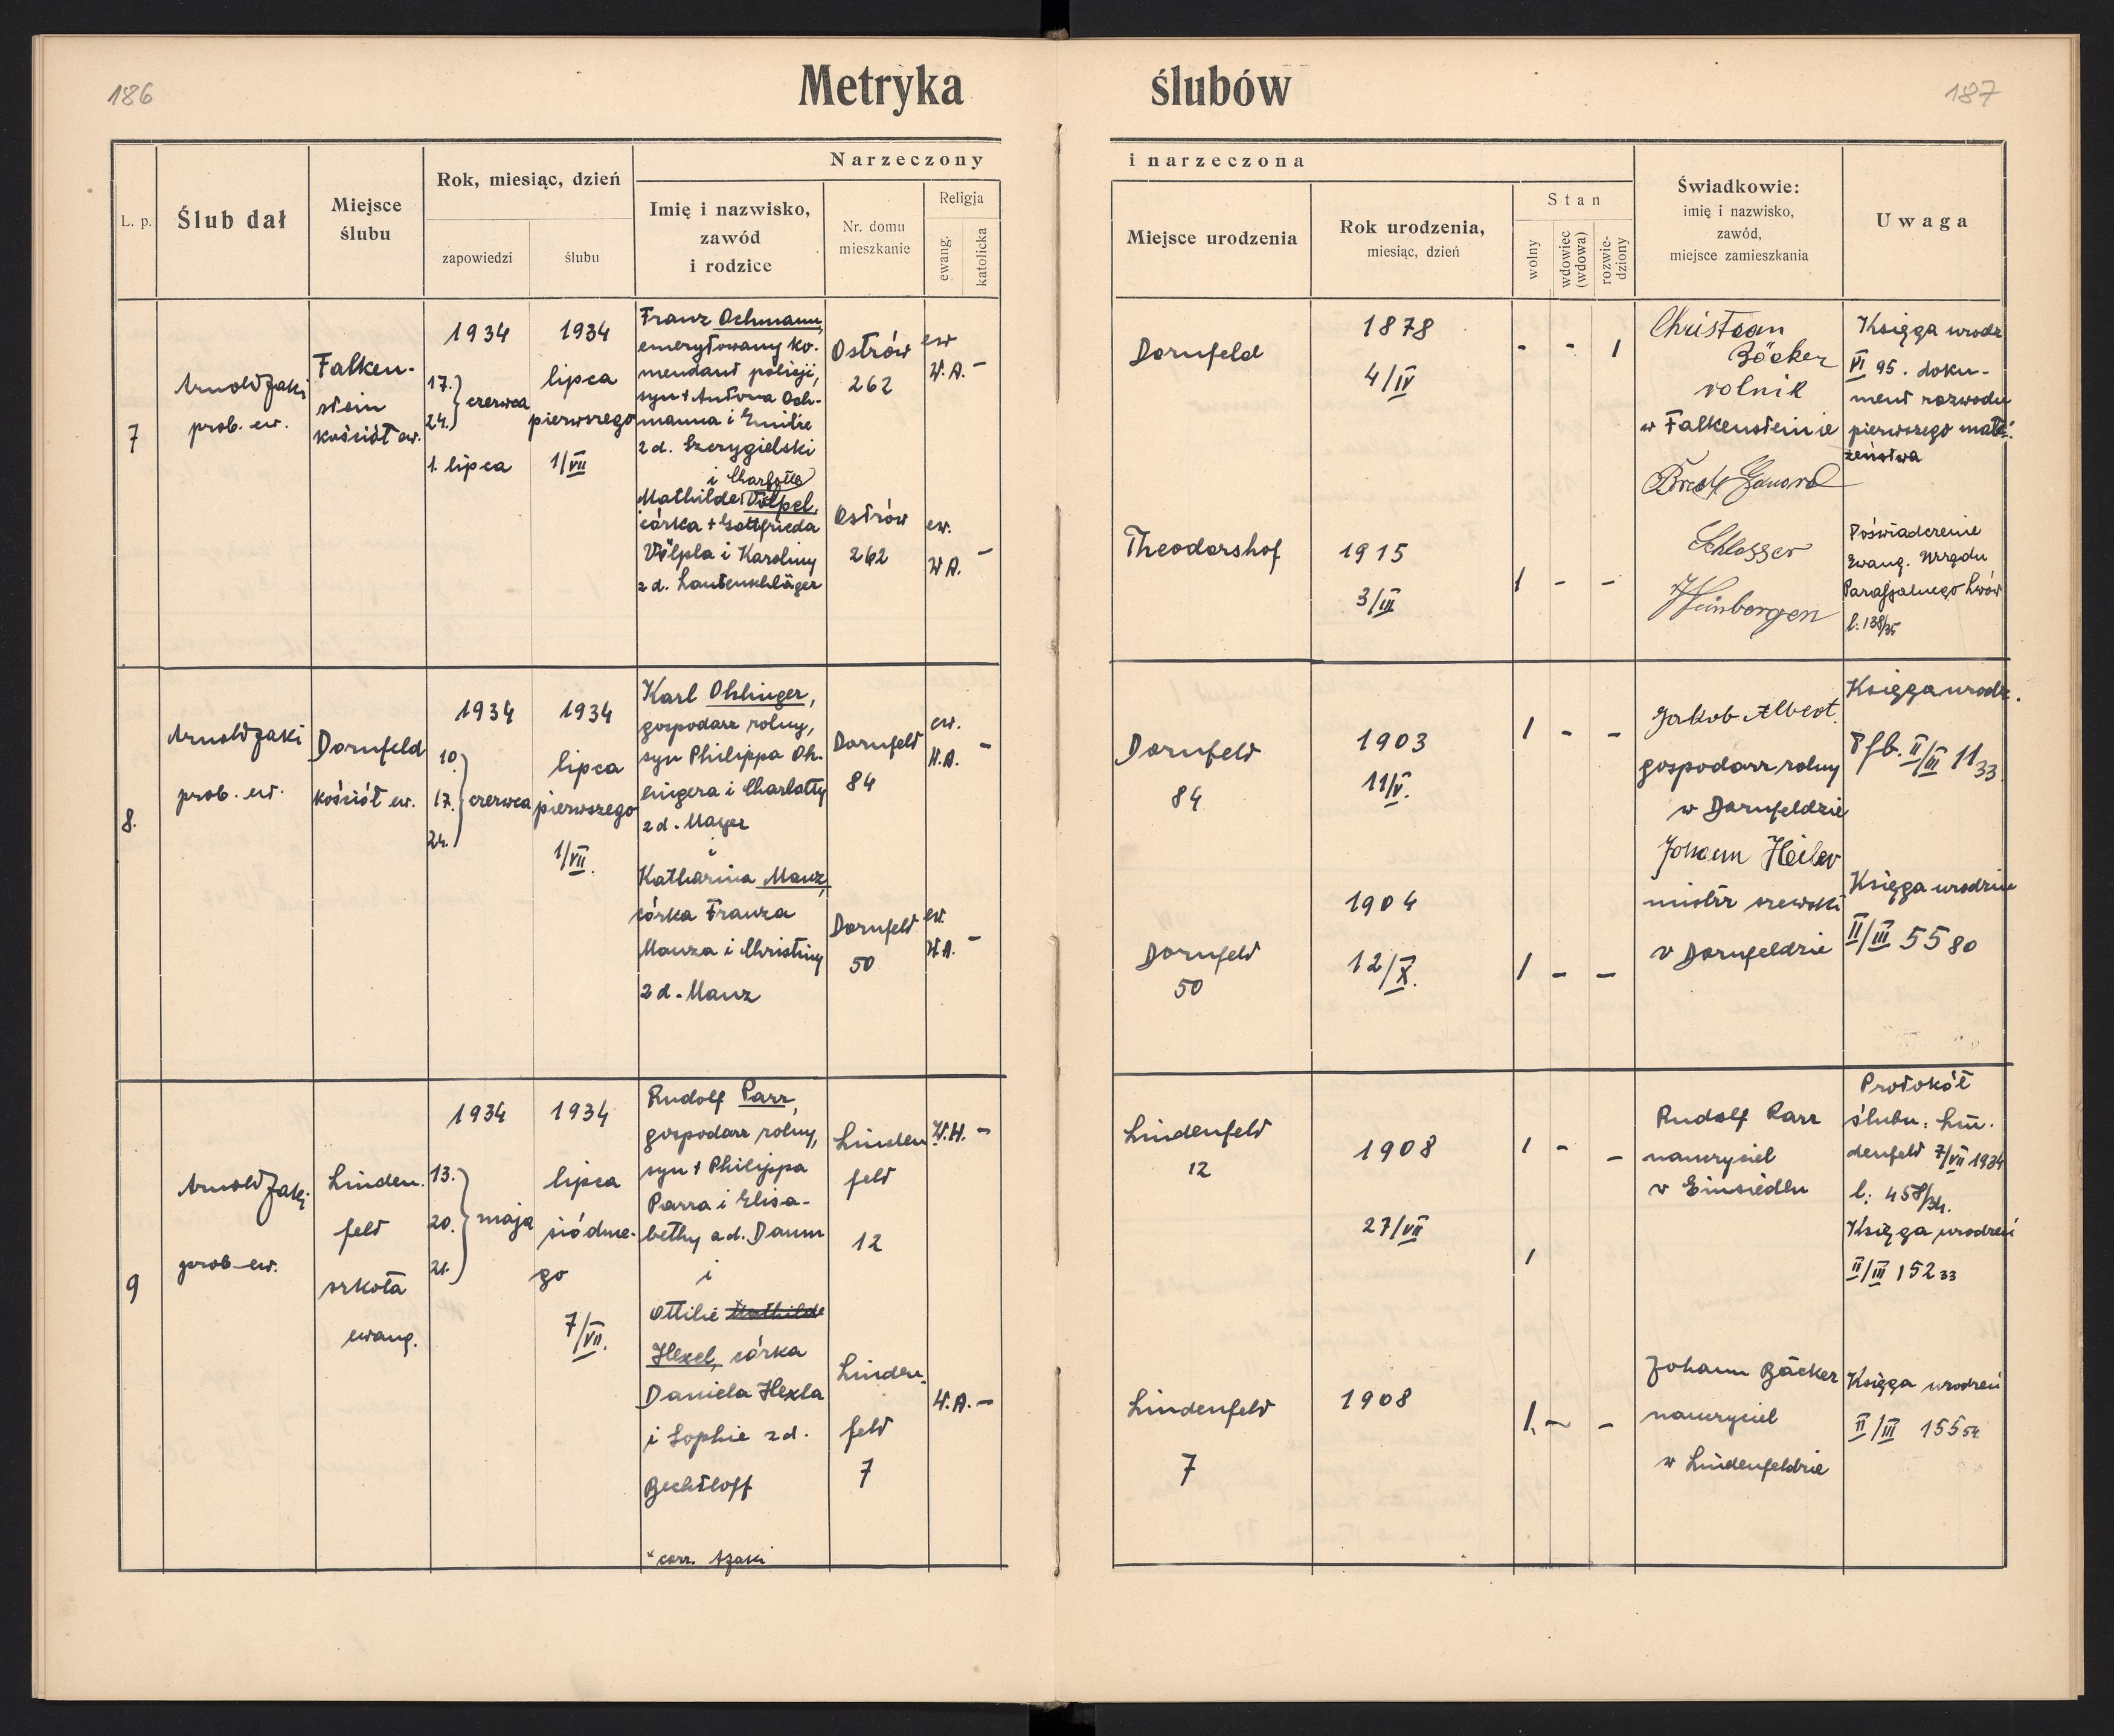 186
Metryka
ślubów
187
L. p.
Ślub dał
Miejsce
ślubu
Rok, miesiąc, dzień
zapowiedzi
ślubu
Narzeczony
Imię i nazwisko,
zawód
i rodzice
Nr. domu
mieszkanie
Religja
ewang.
katolicka
i narzeczona
Miejsce urodzenia
Rok urodzenia,
miesiąc, dzień
Stan
wolny
wdowiec
(wdowa)
rozwie-
dziony
Świadkowie:
imię i nazwisko,
zawód,
miejsce zamieszkania
Uwaga
7
Arnold Zaki
prob. ew.
Falken-
stein
kościół ew.
1934
17.
24.
czerwca
1. lipca
1934
lipca
pierwszego
1/VII
Franz Ochmann,
emerytowany ko-
mendant policji,
syn + Antona Och-
manna i Emilie
z d. Szczygielski
i Charlotte
Mathilde Völpel,
córka + Gottfrieda
Völpla i Karoliny
z d. Lautenschläger
Ostrów
262
Ostrów
262
ew
W.A. -
ew.
W A. -
Dornfeld
Theodorshof
1878
4/IV
1915
3/III
- - 1
1 - -
Christian
Bäcker
rolnik
w Falkensteinie
Schlosser
Weinbergen
Księga urodz
VI 95. doku-
ment rozwodu
pierwszego mał-
żeństwa
Poświadczenie
Ewang. Urzędu
Parafjalnego Lwów
l. 138/35
8.
Arnold Zaki
prob. ew.
Dornfeld
kościół ew.
1934
10.
17.
24.
czerwca
1934
lipca
pierwszego
1/VII.
Karl Ohlinger,
gospodarz rolny,
syn Philippa Oh-
lingera i Charlotty
z d. Mayer
i
Katharina Manz,
córka Franza
Manza i Christiny
z d. Manz
Dornfeld
84
Dornfeld
50
ew.
H.A. -
ew.
H A. -
Dornfeld
84
Dornfeld
50
1903
11/V.
1904
12/X.
1 - -
1 - -
Jakob Albert
gospodarz rolny
w Dornfeldzie
Johann Heiler
mistrz szewski
v Dornfeldzie
Księga urodz.
Pfb. II/III 11 33.
Księga urodzin
II/III 55 80
9
Arnold Zaki
prob ew.
Linden.
feld
szkoła
ewang.
1934
13.
20.
21.
maja
1934
lipca
siódme-
go
7/VII.
Rudolf Parr,
gospodarz rolny,
syn + Philippa
Parra i Elisa-
bethy z d. Daum
i
Ottilie Mathilde
Hexel, córka
Daniela Hexla
i Sophie z d.
Bechtloff
*corr. AZaki
Linden
feld
12
Linden-
feld
7
W.H. -
W.A. -
Lindenfeld
12
Lindenfeld
7
1908
27/VII
1908
1 - -
1
1. - -
Rudolf Parr
nauczyciel
v Einsiedlu
Johann Bäcker
nauczyciel
w Lindenfeldzie
Protokół
ślubu: Lin-
denfeld 7/VII 1934
l: 458/34.
Księga urodzeń
II/III 152 33
Księga urodzeń
II/III 155 54